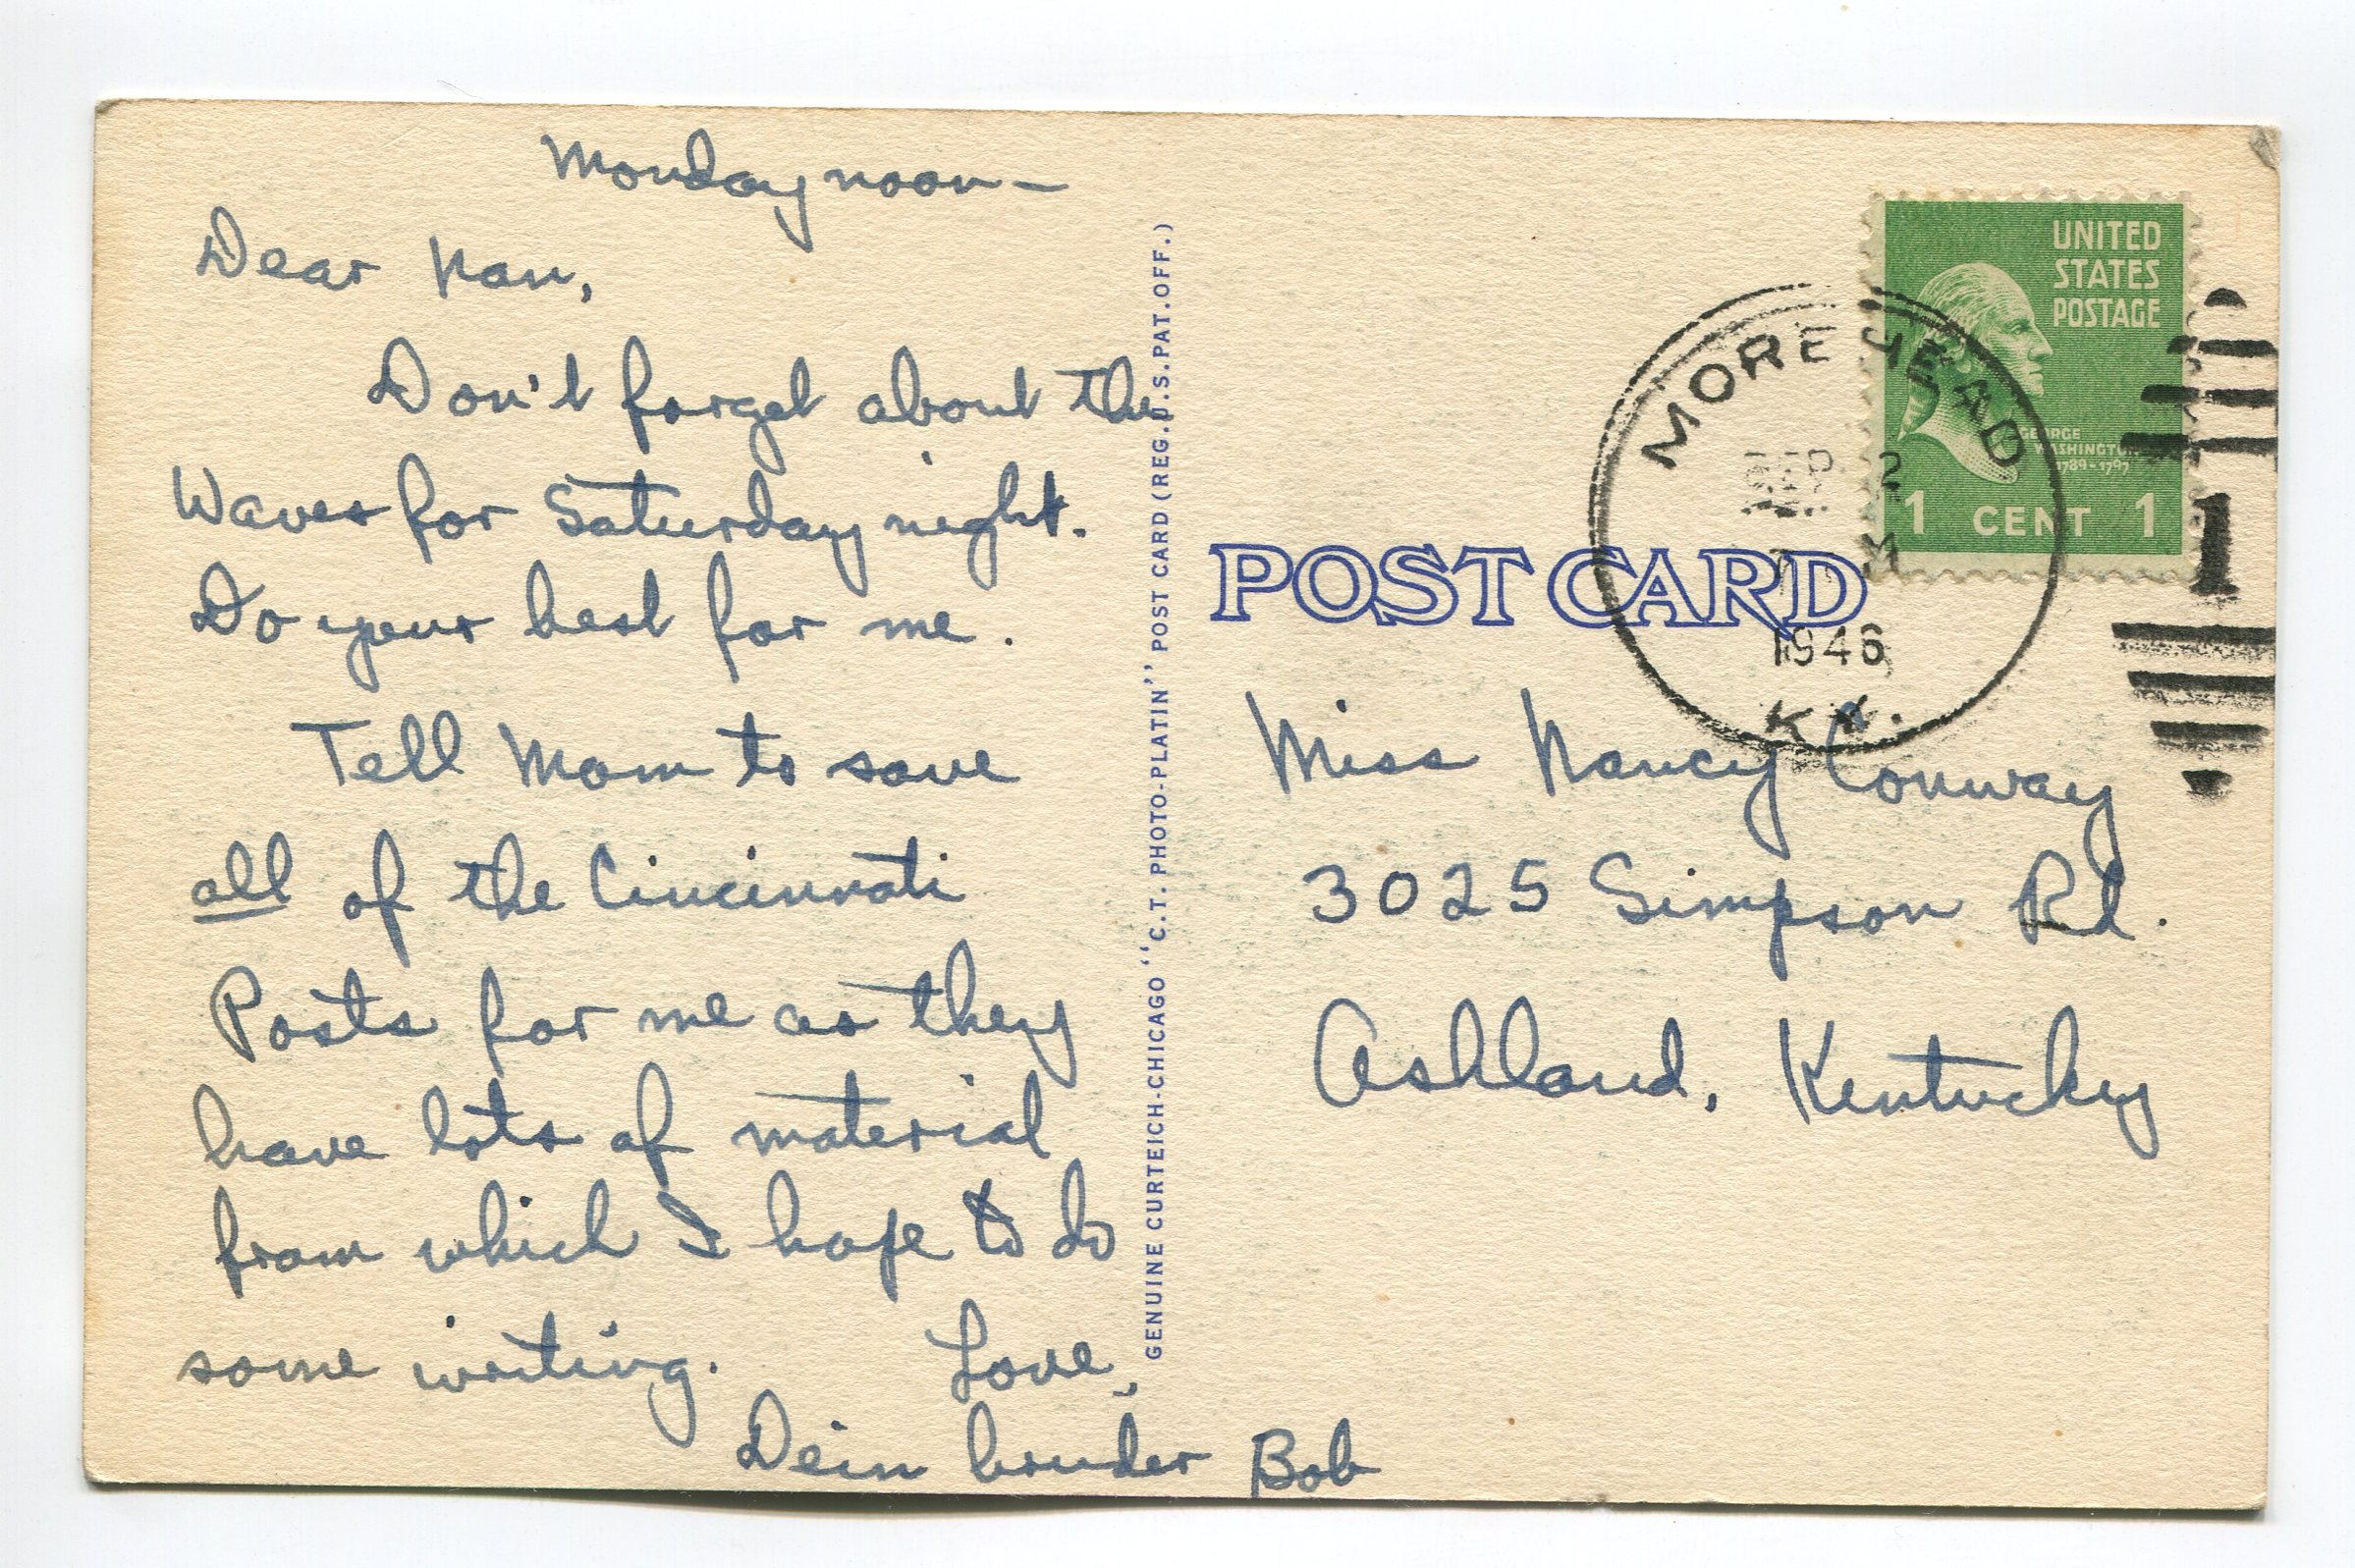 Monday noon—
Dear Nan,
Don't forget about the
Waves for Saturday night.
Do your best for me.
Tell Mom to save
all of the Cincinnati
Posts for me as they
have lots of material
from which I hope to do
some writing. Love,
Dein bruder Bob
GENUINE CURTEICH-CHICAGO "C.T. PHOTO-PLATIN" POST CARD (REG. U.S. PAT. OFF.)
POST CARD
UNITED
STATES
POSTAGE
GEORGE
WASHINGTON
1789-1797
1 CENT 1
MOREHEAD
SEP 2
1946
KY.
1
Miss Nancy Conway
3025 Simpson Rd.
Ashland, Kentucky